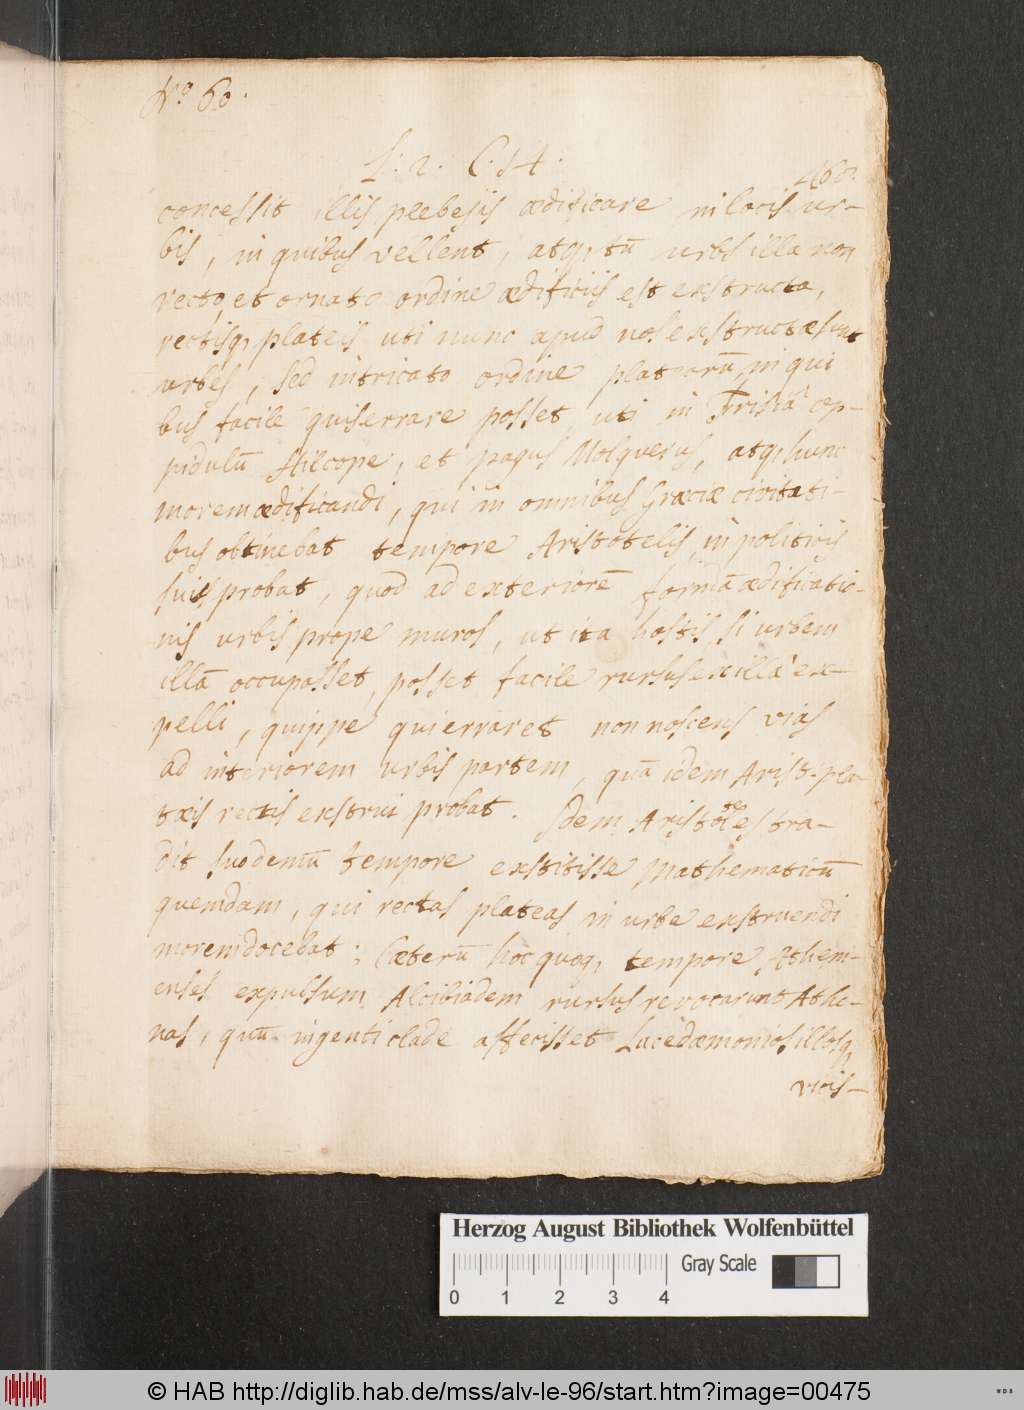 Nº 60.
L. 2. C. 14.
460.
concessit illis plebejis ædificare in locis ur-
bis, in quibus vellent, atq, tū urbs illa non
recto, et ornato ordine ædificiis est exstructa,
rectisq, plateis uti nunc apud nos exstructæ sunt
urbes, sed intricato ordine platearū, in qui
bus facile quis errare posset, uti in Frisiâ op-
pidulū Hilcope, et pagus Molquerus, atq, hunc
morem ædificandi, qui in omnibus Græciæ civitati-
bus obtinebat tempore Aristotelis, in politicis
suis probat, quod ad exteriorē formā ædificatio-
nis urbis prope muros, ut ita hostis, si urbem
illā occupasset, posset facile rursus ex illâ ex-
pelli, quippe qui erraret non noscens vias
ad interiorem urbis partem, quā idem Arist. pla-
tæis rectis exstrui probat. Idem Aristoteles tra-
dit suo demū tempore exstitisse Mathematicū
quemdam, qui rectas plateas in urbe exstruendi
morem docebat; Cæterū hoc quoq, tempore Atheni-
enses expulsum Alcibiadem rursus revocarunt Athe-
nas, quū ingenti clade affecisset Lacedæmonios illosq,
vicis-
Herzog August Bibliothek Wolfenbüttel
0 1 2 3 4
Gray Scale
© HAB http://diglib.hab.de/mss/alv-le-96/start.htm?image=00475